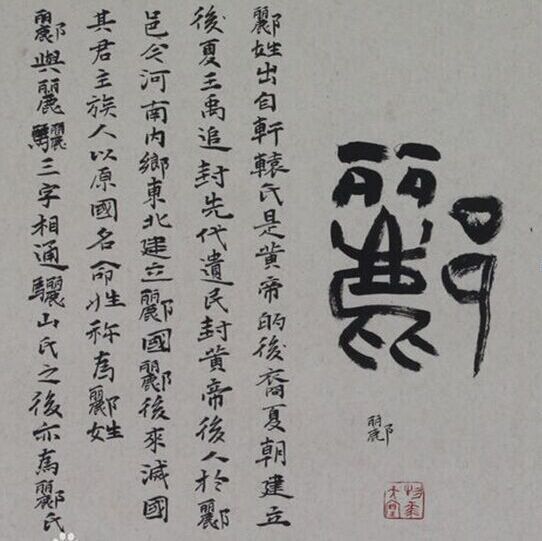 酈
酈
酈姓出自軒轅氏是黄帝的後裔夏朝建立
後夏王禹追封先代遺民封黄帝後人於酈
邑今河南内鄉東北建立酈國酈後來滅國
其君主族人以原國名命性称為酈姓
酈與麗驪三字相通驪山氏之後亦為酈氏